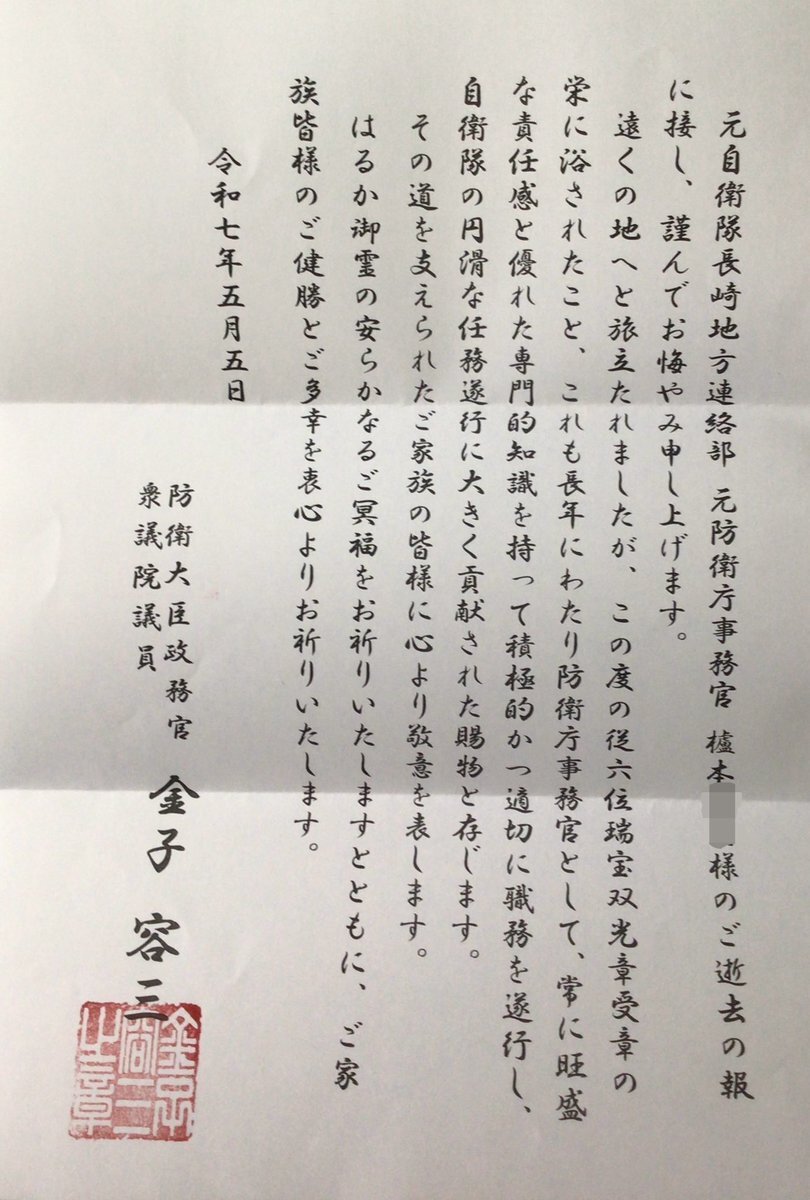 元自衛隊長崎地方連絡部 元防衛庁事務官 櫨本 様のご逝去の報
に接し、謹んでお悔やみ申し上げます。
遠くの地へと旅立たれましたが、この度の従六位瑞宝双光章受章の
栄に浴されたこと、これも長年にわたり防衛庁事務官として、常に旺盛
な責任感と優れた専門的知識を持って積極的かつ適切に職務を遂行し、
自衛隊の円滑な任務遂行に大きく貢献された賜物と存じます。
その道を支えられたご家族の皆様に心より敬意を表します。
はるか御霊の安らかなるご冥福をお祈りいたしますとともに、ご家
族皆様のご健勝とご多幸を衷心よりお祈りいたします。
令和七年五月五日
防衛大臣政務官
衆議院議員
金子 容三